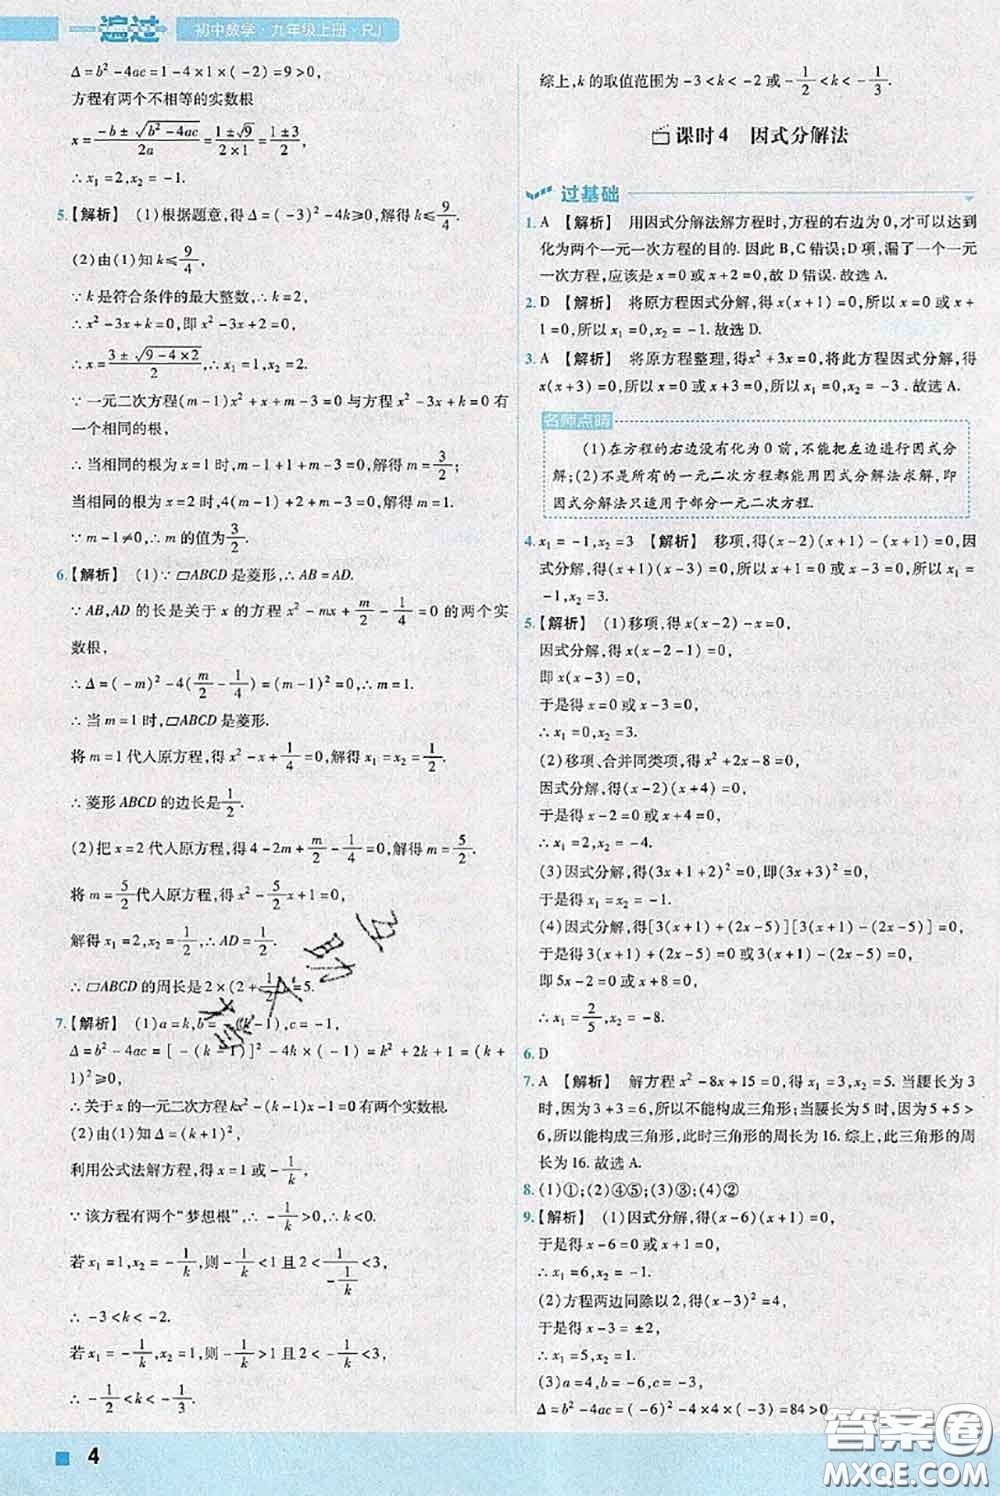 一遍过 初中数学·九年级上册·RJ
Δ=b²-4ac=1-4×1×(-2)=9>0,
方程有两个不相等的实数根
x=\frac{-b±\sqrt{b²-4ac}}{2a}=\frac{1±\sqrt{9}}{2×1}=\frac{1±3}{2}
∴x₁=2,x₂=-1.
5.【解析】 (1)根据题意,得Δ=(-3)²-4k≥0,解得k≤\frac{9}{4}.
(2)由(1)知k≤\frac{9}{4},
∵k是符合条件的最大整数,∴k=2,
∴x²-3x+k=0,即x²-3x+2=0,
∴x=\frac{3±\sqrt{9-4×2}}{2},∴x₁=1,x₂=2.
∵一元二次方程(m-1)x²+x+m-3=0与方程x²-3x+k=0有
一个相同的根,
∴当相同的根为x=1时,m-1+1+m-3=0,解得m=\frac{3}{2};
当相同的根为x=2时,4(m-1)+2+m-3=0,解得m=1.
∵m-1≠0,∴m的值为\frac{3}{2}.
6.【解析】 (1)∵▱ABCD是菱形,∴AB=AD.
∵AB,AD的长是关于x的方程x²-mx+\frac{m}{2}-\frac{1}{4}=0的两个实
数根,
∴Δ=(-m)²-4(\frac{m}{2}-\frac{1}{4})=(m-1)²=0,∴m=1.
∴当m=1时,▱ABCD是菱形.
将m=1代入原方程,得x²-x+\frac{1}{4}=0,解得x₁=x₂=\frac{1}{2}.
∴菱形ABCD的边长是\frac{1}{2}.
(2)把x=2代入原方程,得4-2m+\frac{m}{2}-\frac{1}{4}=0,解得m=\frac{5}{2}.
将m=\frac{5}{2}代入原方程,得x²-\frac{5}{2}x+1=0,
解得x₁=2,x₂=\frac{1}{2},∴AD=\frac{1}{2}.
∴▱ABCD的周长是2×(2+\frac{1}{2})=5.
7.【解析】 (1)a=k,b=-(k-1),c=-1,
Δ=b²-4ac=[-(k-1)]²-4k×(-1)=k²+2k+1=(k+
1)²≥0,
∴关于x的一元二次方程kx²-(k-1)x-1=0有两个实数根.
(2)由(1)知Δ=(k+1)²,
利用公式法解方程,得x=1或-\frac{1}{k}.
∵该方程有两个“梦想根”,∴-\frac{1}{k}>0,∴k<0.
若x₁=1,x₂=-\frac{1}{k},则-\frac{1}{k}<1且2<\frac{1}{-\frac{1}{k}}<3,
∴-3<k<-2.
若x₁=-\frac{1}{k},x₂=1,则-\frac{1}{k}>1且2<-\frac{1}{k}<3,
∴-\frac{1}{2}<k<-\frac{1}{3}.
4
综上,k的取值范围为-3<k<-2或-\frac{1}{2}<k<-\frac{1}{3}.
课时4 因式分解法
过基础
1. A 【解析】 用因式分解法解方程时,方程的右边为0,才可以达到
化为两个一元一次方程的目的. 因此B,C错误;D项,漏了一个一元
一次方程,应该是x=0或x+2=0,故D错误. 故选A.
2. D 【解析】 将原方程因式分解,得x(x+1)=0,所以x=0或x+
1=0,所以x₁=0,x₂=-1. 故选D.
3. A 【解析】 将原方程整理,得x²+3x=0,将此方程因式分解,得
x(x+3)=0,所以x=0或x+3=0,所以x₁=0,x₂=-3. 故选A.
名师点睛
(1)在方程的右边没有化为0前,不能把左边进行因式分
解;(2)不是所有的一元二次方程都能用因式分解法求解,即
因式分解法只适用于部分一元二次方程.
4. x₁=-1,x₂=3 【解析】 移项,得(x-2)(x+1)-(x+1)=0,因
式分解,得(x+1)(x-3)=0,所以x+1=0或x-3=0,所以x₁=
-1,x₂=3.
5.【解析】 (1)移项,得x(x-2)-x=0,
因式分解,得x(x-2-1)=0,
即x(x-3)=0,
于是得x=0或x-3=0,
∴x₁=0,x₂=3.
(2)移项、合并同类项,得x²+2x-8=0,
因式分解,得(x-2)(x+4)=0,
于是得x-2=0或x+4=0,
∴x₁=2,x₂=-4.
(3)因式分解,得(3x+1+2)²=0,即(3x+3)²=0,
于是得x₁=x₂=-1.
(4)因式分解,得[3(x+1)+(2x-5)][3(x+1)-(2x-5)]=0,
于是得3(x+1)+(2x-5)=0或3(x+1)-(2x-5)=0,
即5x-2=0或x+8=0,
∴x₁=\frac{2}{5},x₂=-8.
6. D
7. A 【解析】 解方程x²-8x+15=0,得x₁=3,x₂=5. 当腰长为3
时,因为3+3=6,所以不能构成三角形;当腰长为5时,因为5+5>
6,所以能构成三角形,此时三角形的周长为16. 综上,此三角形的周
长为16. 故选A.
8. (1)①;(2)④⑤;(3)③;(4)②
9.【解析】 (1)因式分解,得(x-6)(x+1)=0,
于是得x-6=0或x+1=0,
∴x₁=6,x₂=-1.
(2)方程两边同除以2,得(x-3)²=4,
于是得x-3=±2,
∴x₁=5,x₂=1.
(3)a=4,b=-6,c=-3,
Δ=b²-4ac=(-6)²-4×4×(-3)=84>0
答案圈
MXQE.COM